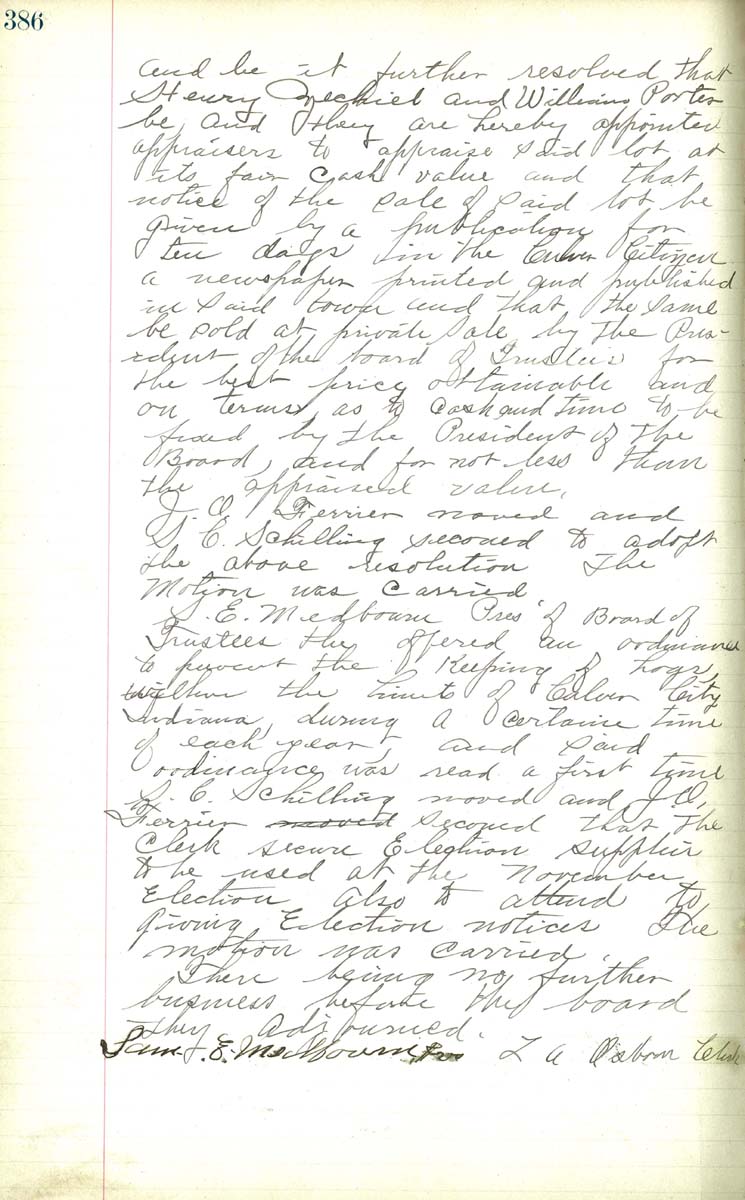 386
and be it further resolved that
Henry Zechiel and William Porter
be and they are hereby appointed
appraisers to appraise said lot at
its fair cash value and that
notice of the sale of said lot be
given by a publication for
ten days in the Culver Citizen
a newspaper printed and published
in said town and that the same
be sold at private sale by the Pres-
ident of the board of Trustees for
the best price obtainable and
on terms as to cash and time to be
fixed by the President of the
Board, and for not less than
the appraised value.
J. O. Ferrier moved and
S. C. Schilling second to adopt
the above resolution The
Motion was carried
S. E. Medbourn Pres' of Board of
Trustees the offered an ordinance
to prevent the Keeping of hogs,
within the limits of Culver City
Indiana, during a certaine time
of each year, and said
ordinance was read a first time
S. C. Schilling moved and J.O.
Ferrier moved second that the
Clerk secure Election supplies
to be used at the November
Election also to attend to
giving Election notices The
motion was carried.
There being no further
business before the board
they adjourned.
Sam. E. Medbourn Pres L A Osborn Clerk